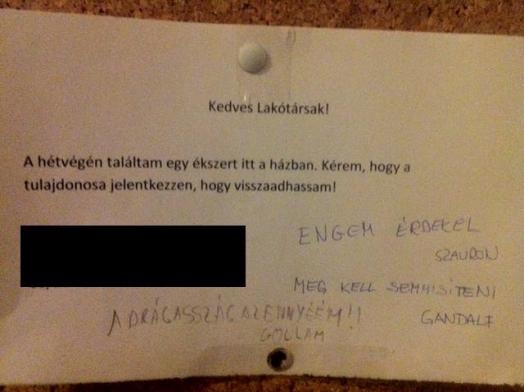 Kedves Lakótársak!
A hétvégén találtam egy ékszert itt a házban. Kérem, hogy a
tulajdonosa jelentkezzen, hogy visszaadhassam!
ENGEM ÉRDEKEL
SZAURON
MEG KELL SEMMISÍTENI
GANDALF
A DRÁGASSZÁG AZENNYÉÉM!!
GOLLAM